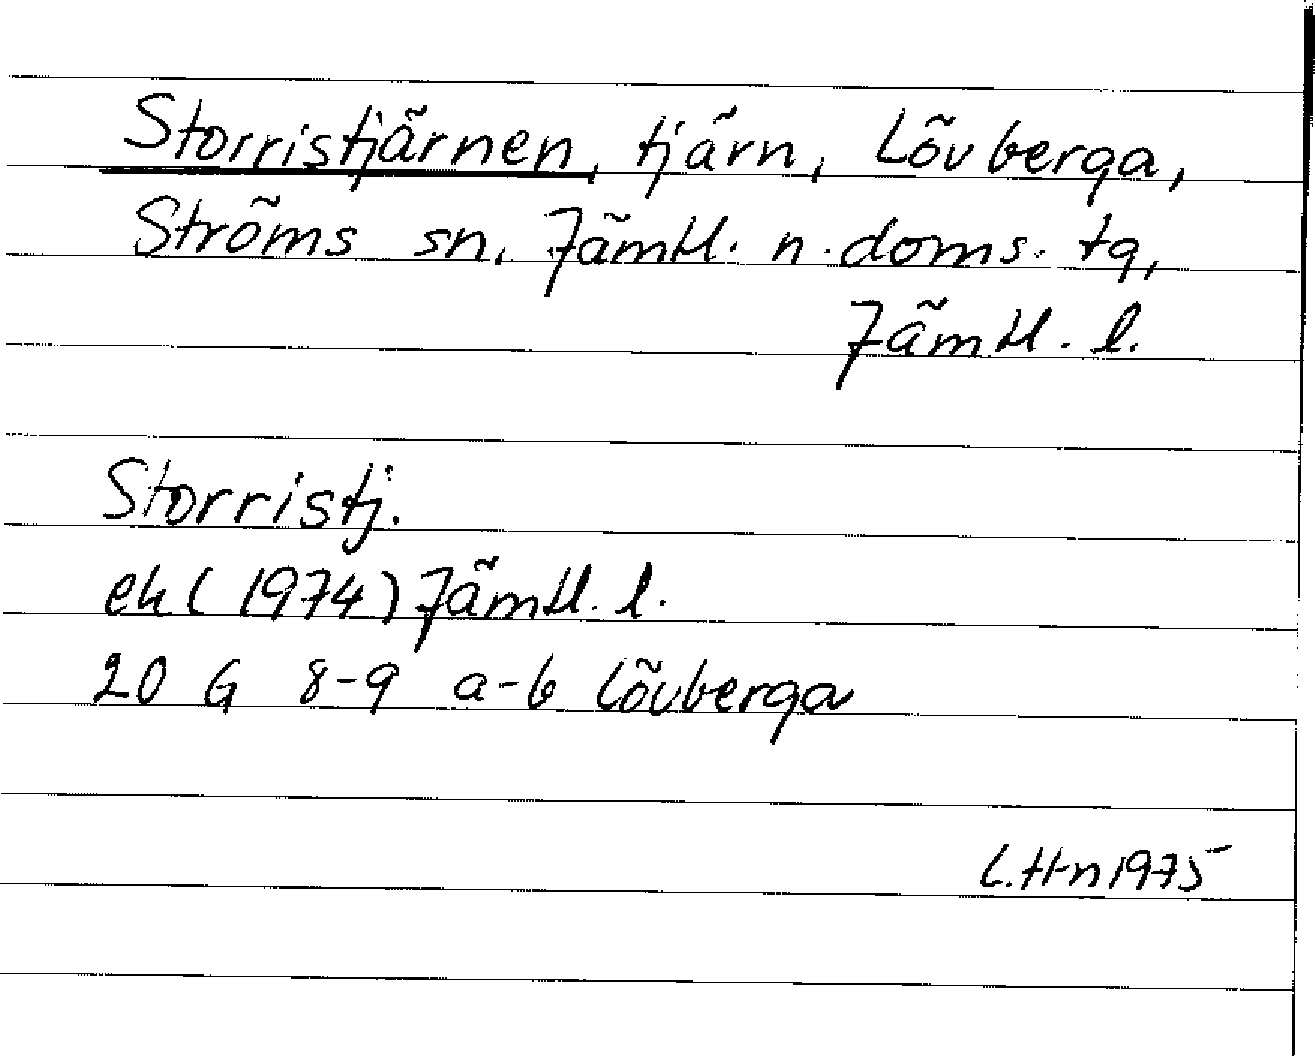 Storristjärnen, tjärn, Lövberga,
Ströms sn, Jämtl. n. doms. tg,
Jämtl. l.
Storristj.
ek (1974) Jämtl. l.
20 G 8-9 a-b Lövberga
L.H-n 1975